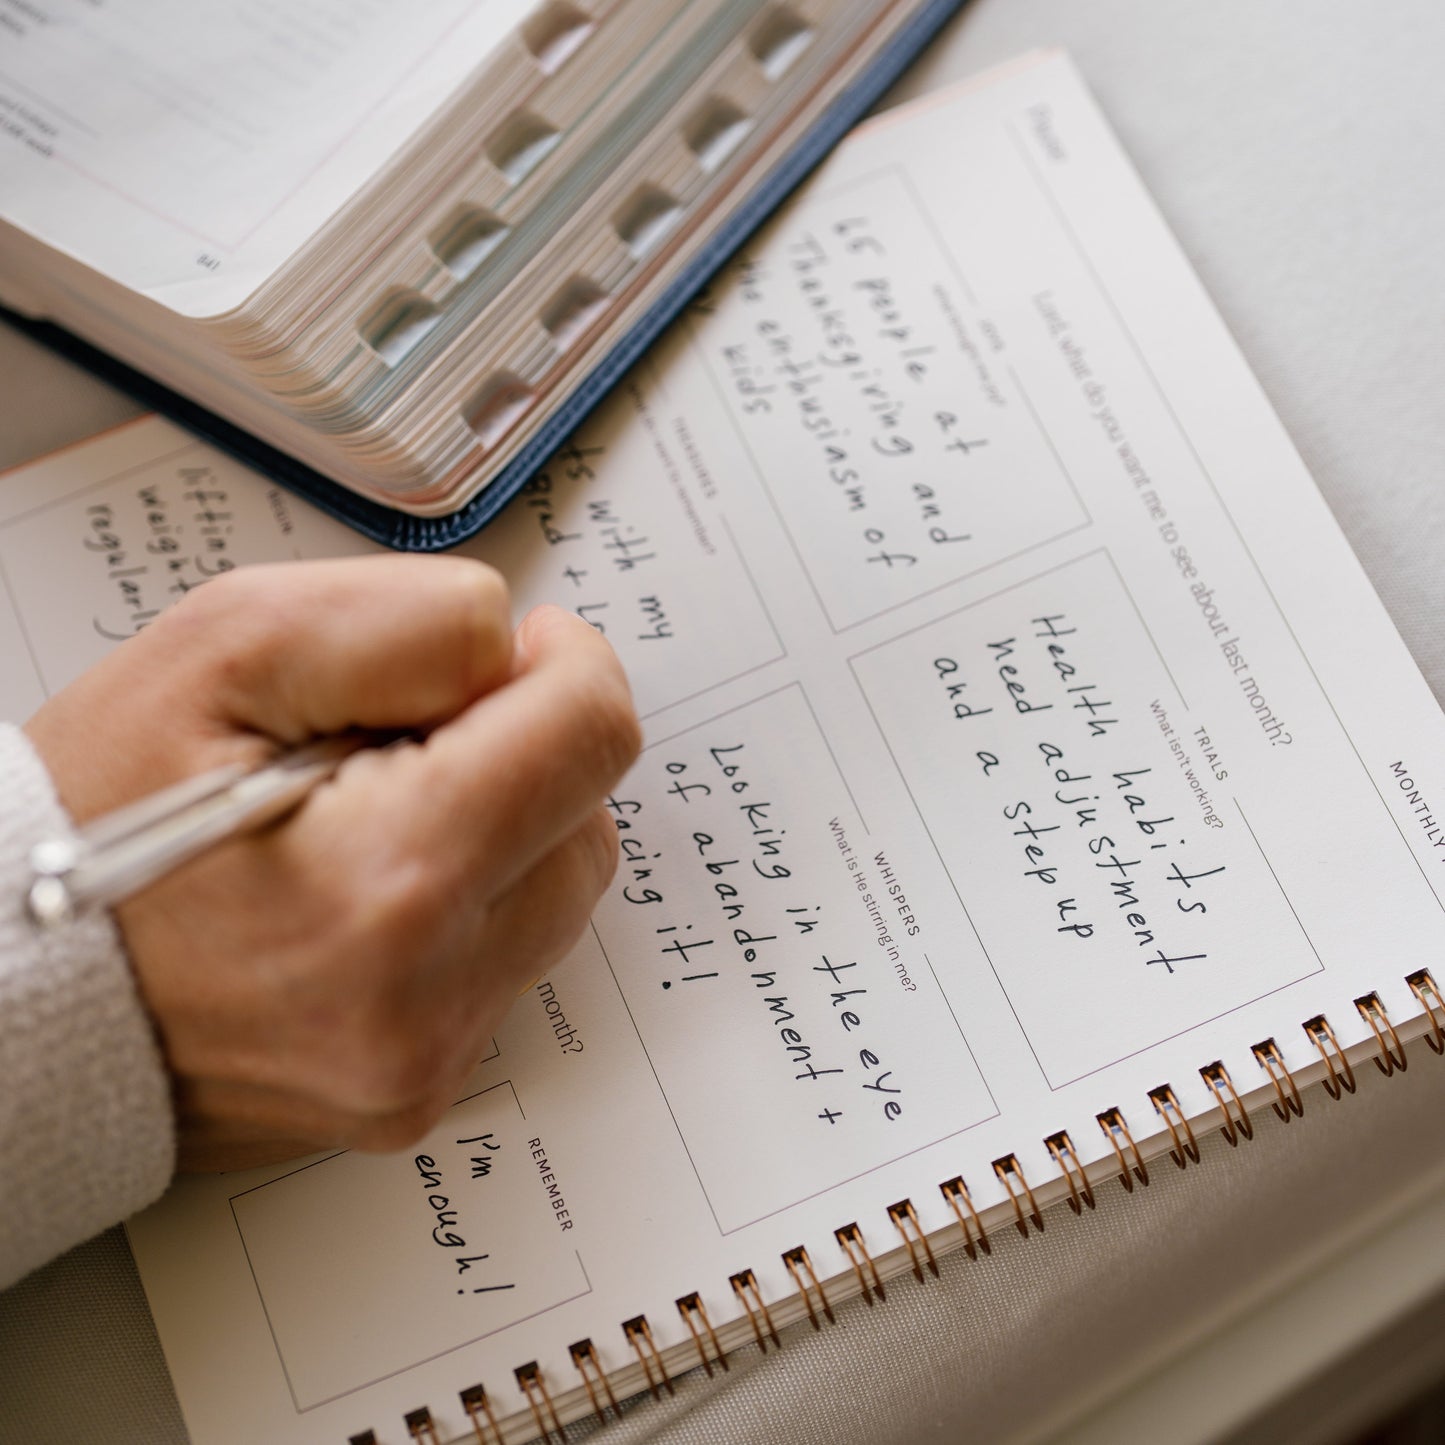 MONTHLY
Lord, what do you want me to see about last month?
JOYS
65 people at
Thanksgiving and
the enthusiasm of
kids
TRIALS
What isn't working?
Health habits
need adjustment
and a step up
TREASURES
want to remember?
with my
grad +
WHISPERS
What is He stirring in me?
Looking in the eye
of abandonment +
facing it!
month?
BEGIN
lifting
weight
regularly
REMEMBER
I'm
enough!
841